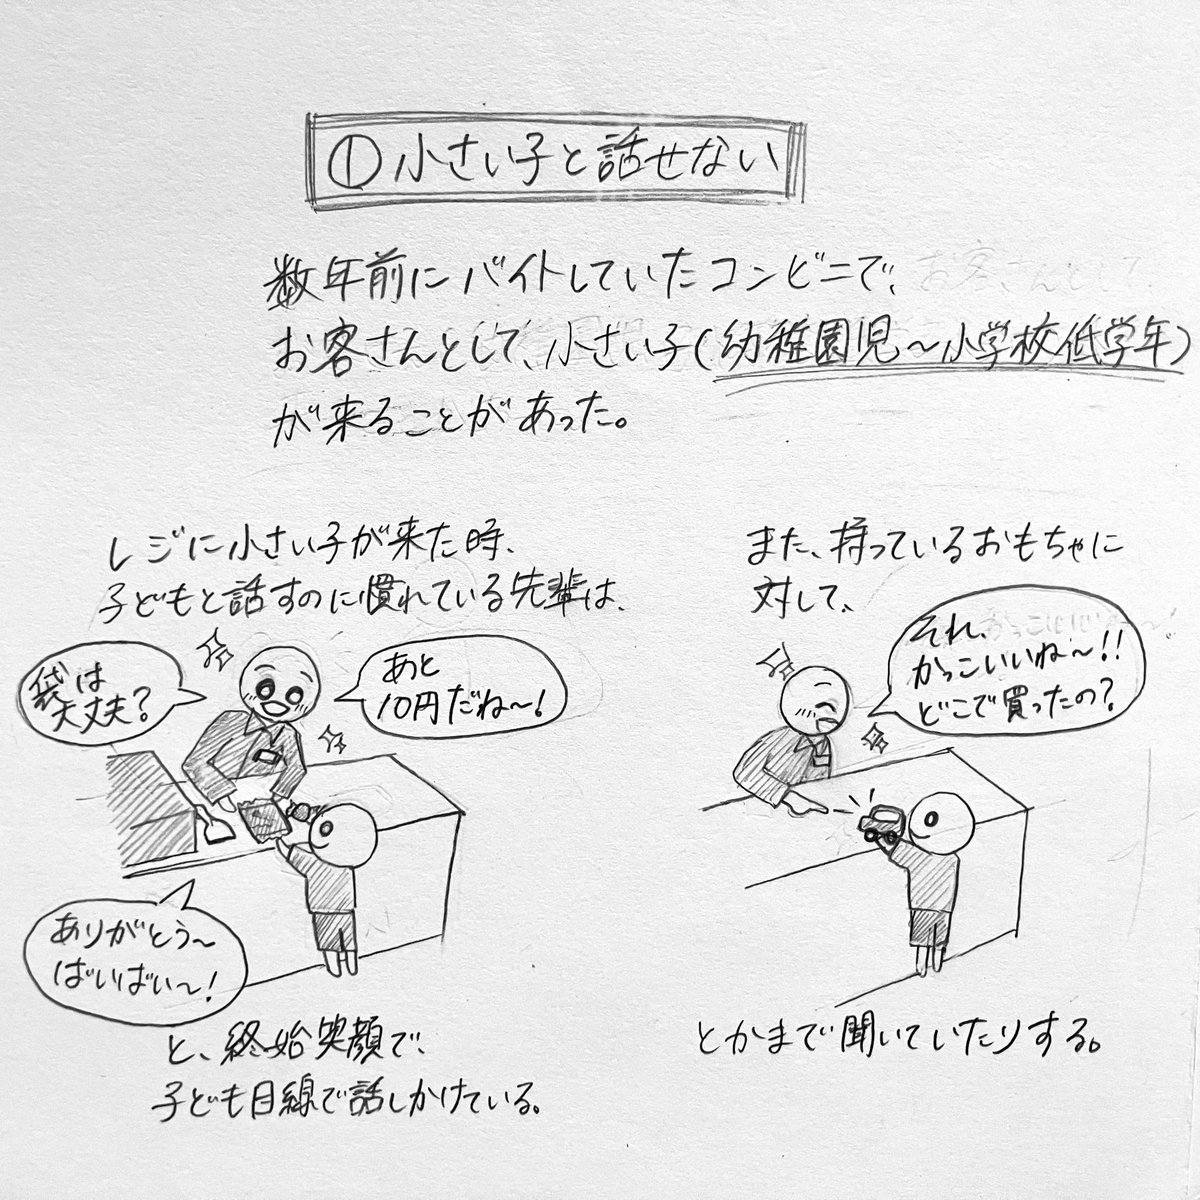 ①小さい子と話せない
数年前にバイトしていたコンビニで、
お客さんとして、小さい子(幼稚園児〜小学校低学年)
が来ることがあった。
レジに小さい子が来た時、
子どもと話すのに慣れている先輩は、
袋は
大丈夫?
あと
10円だね〜!
ありがとう〜
ばいばい〜!
と、終始笑顔で、
子ども目線で話しかけている。
また、持っているおもちゃに
対して、
それ、
かっこいいね〜!!
どこで買ったの?
とかまで聞いていたりする。